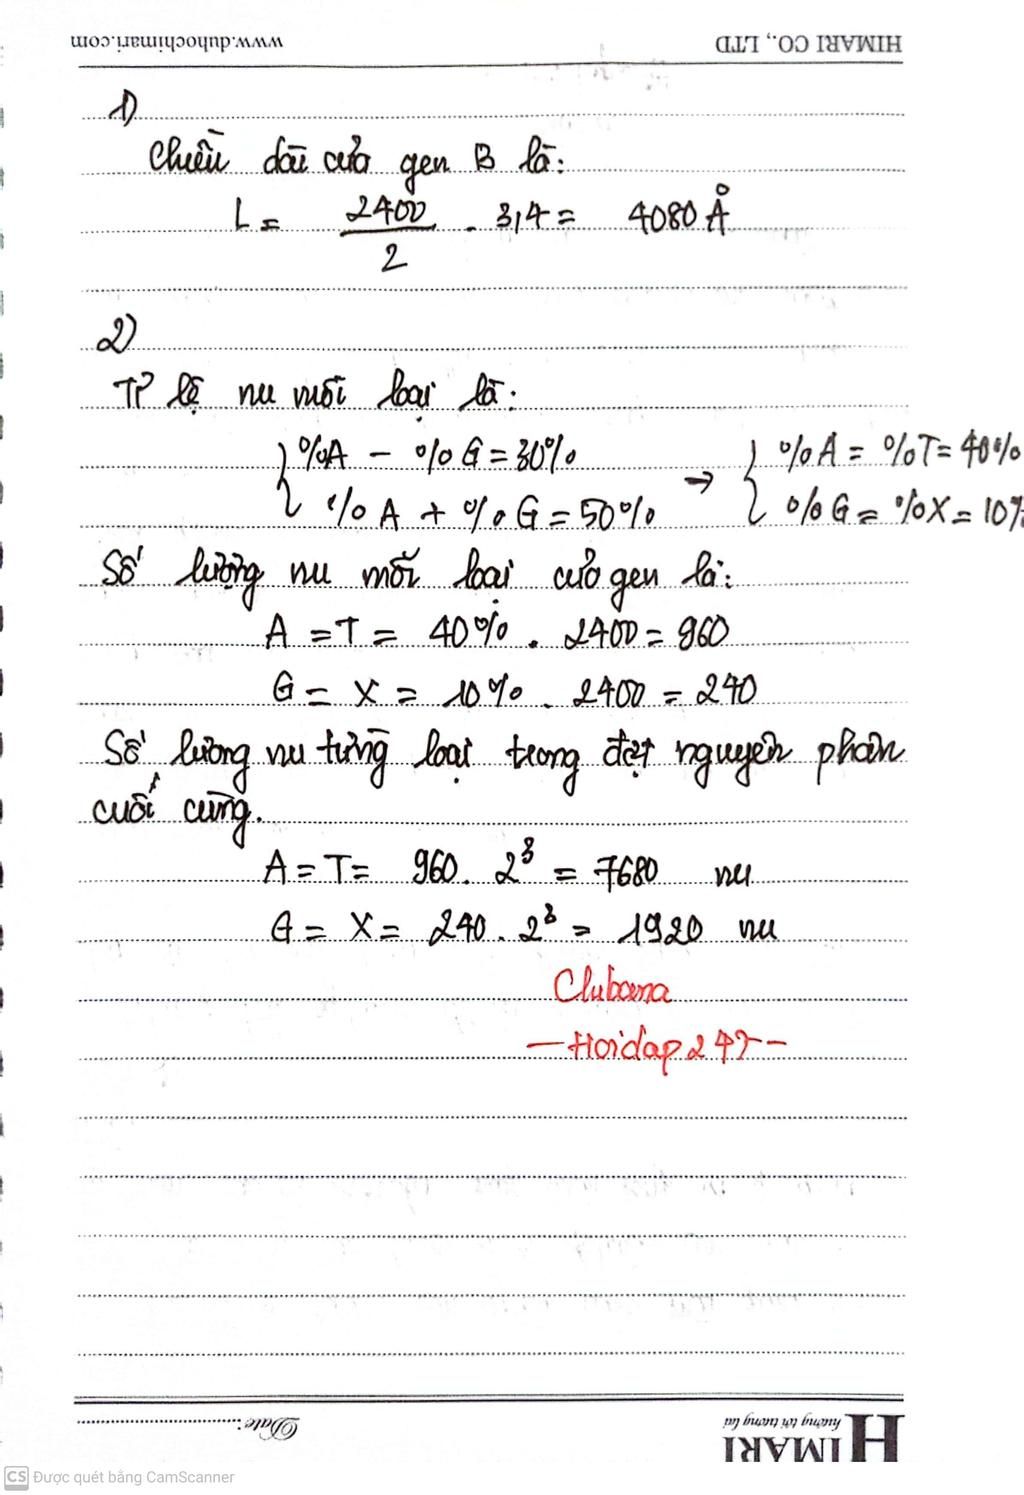 www.duhochimari.com HIMARI CO., LTD
1)
Chiều dài của gen B là:
L = 2400/2 . 3,4 = 4080 Å
2)
Tỉ lệ nu mỗi loại là:
{ %A - %G = 30%
{ %A + %G = 50% → { %A = %T = 40%
{ %G = %X = 10%
Số lượng nu mỗi loại của gen là:
A = T = 40% . 2400 = 960
G = X = 10% . 2400 = 240
Số lượng nu từng loại trong đợt nguyên phân
cuối cùng.
A = T = 960 . 2³ = 7680 nu
G = X = 240 . 2³ = 1920 nu
Clubana
- Hoidap247 -
Date:
HIMARI
hướng tới tương lai
CS Được quét bằng CamScanner